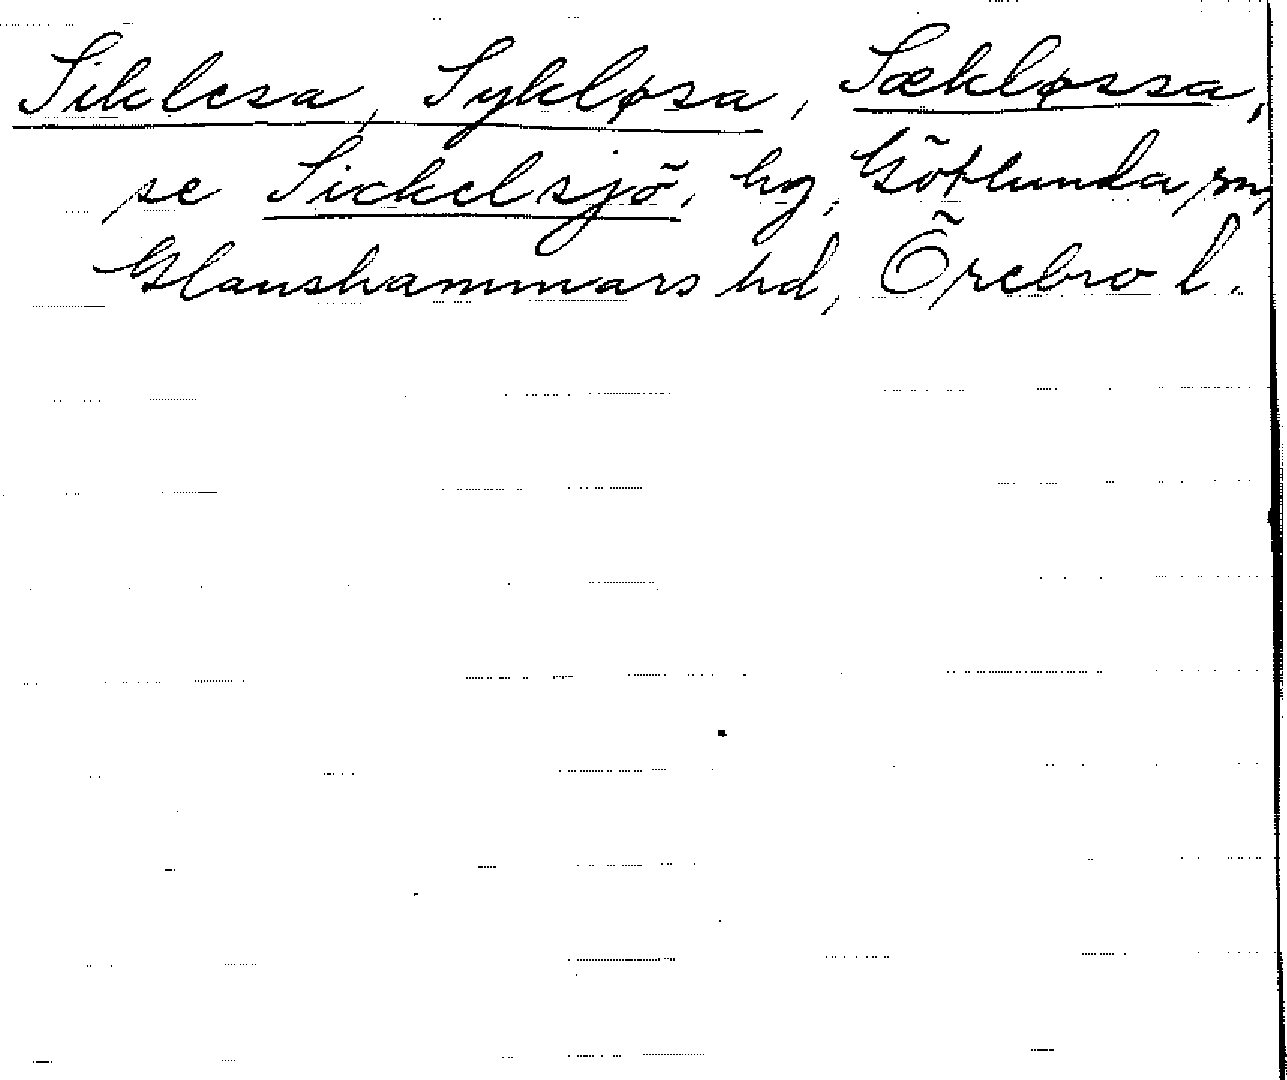 Siklesa, Sykløsa, Sækløssa,
se Sickelsjö, hg, Götlunda sn,
Glanshammars hd, Örebro l.